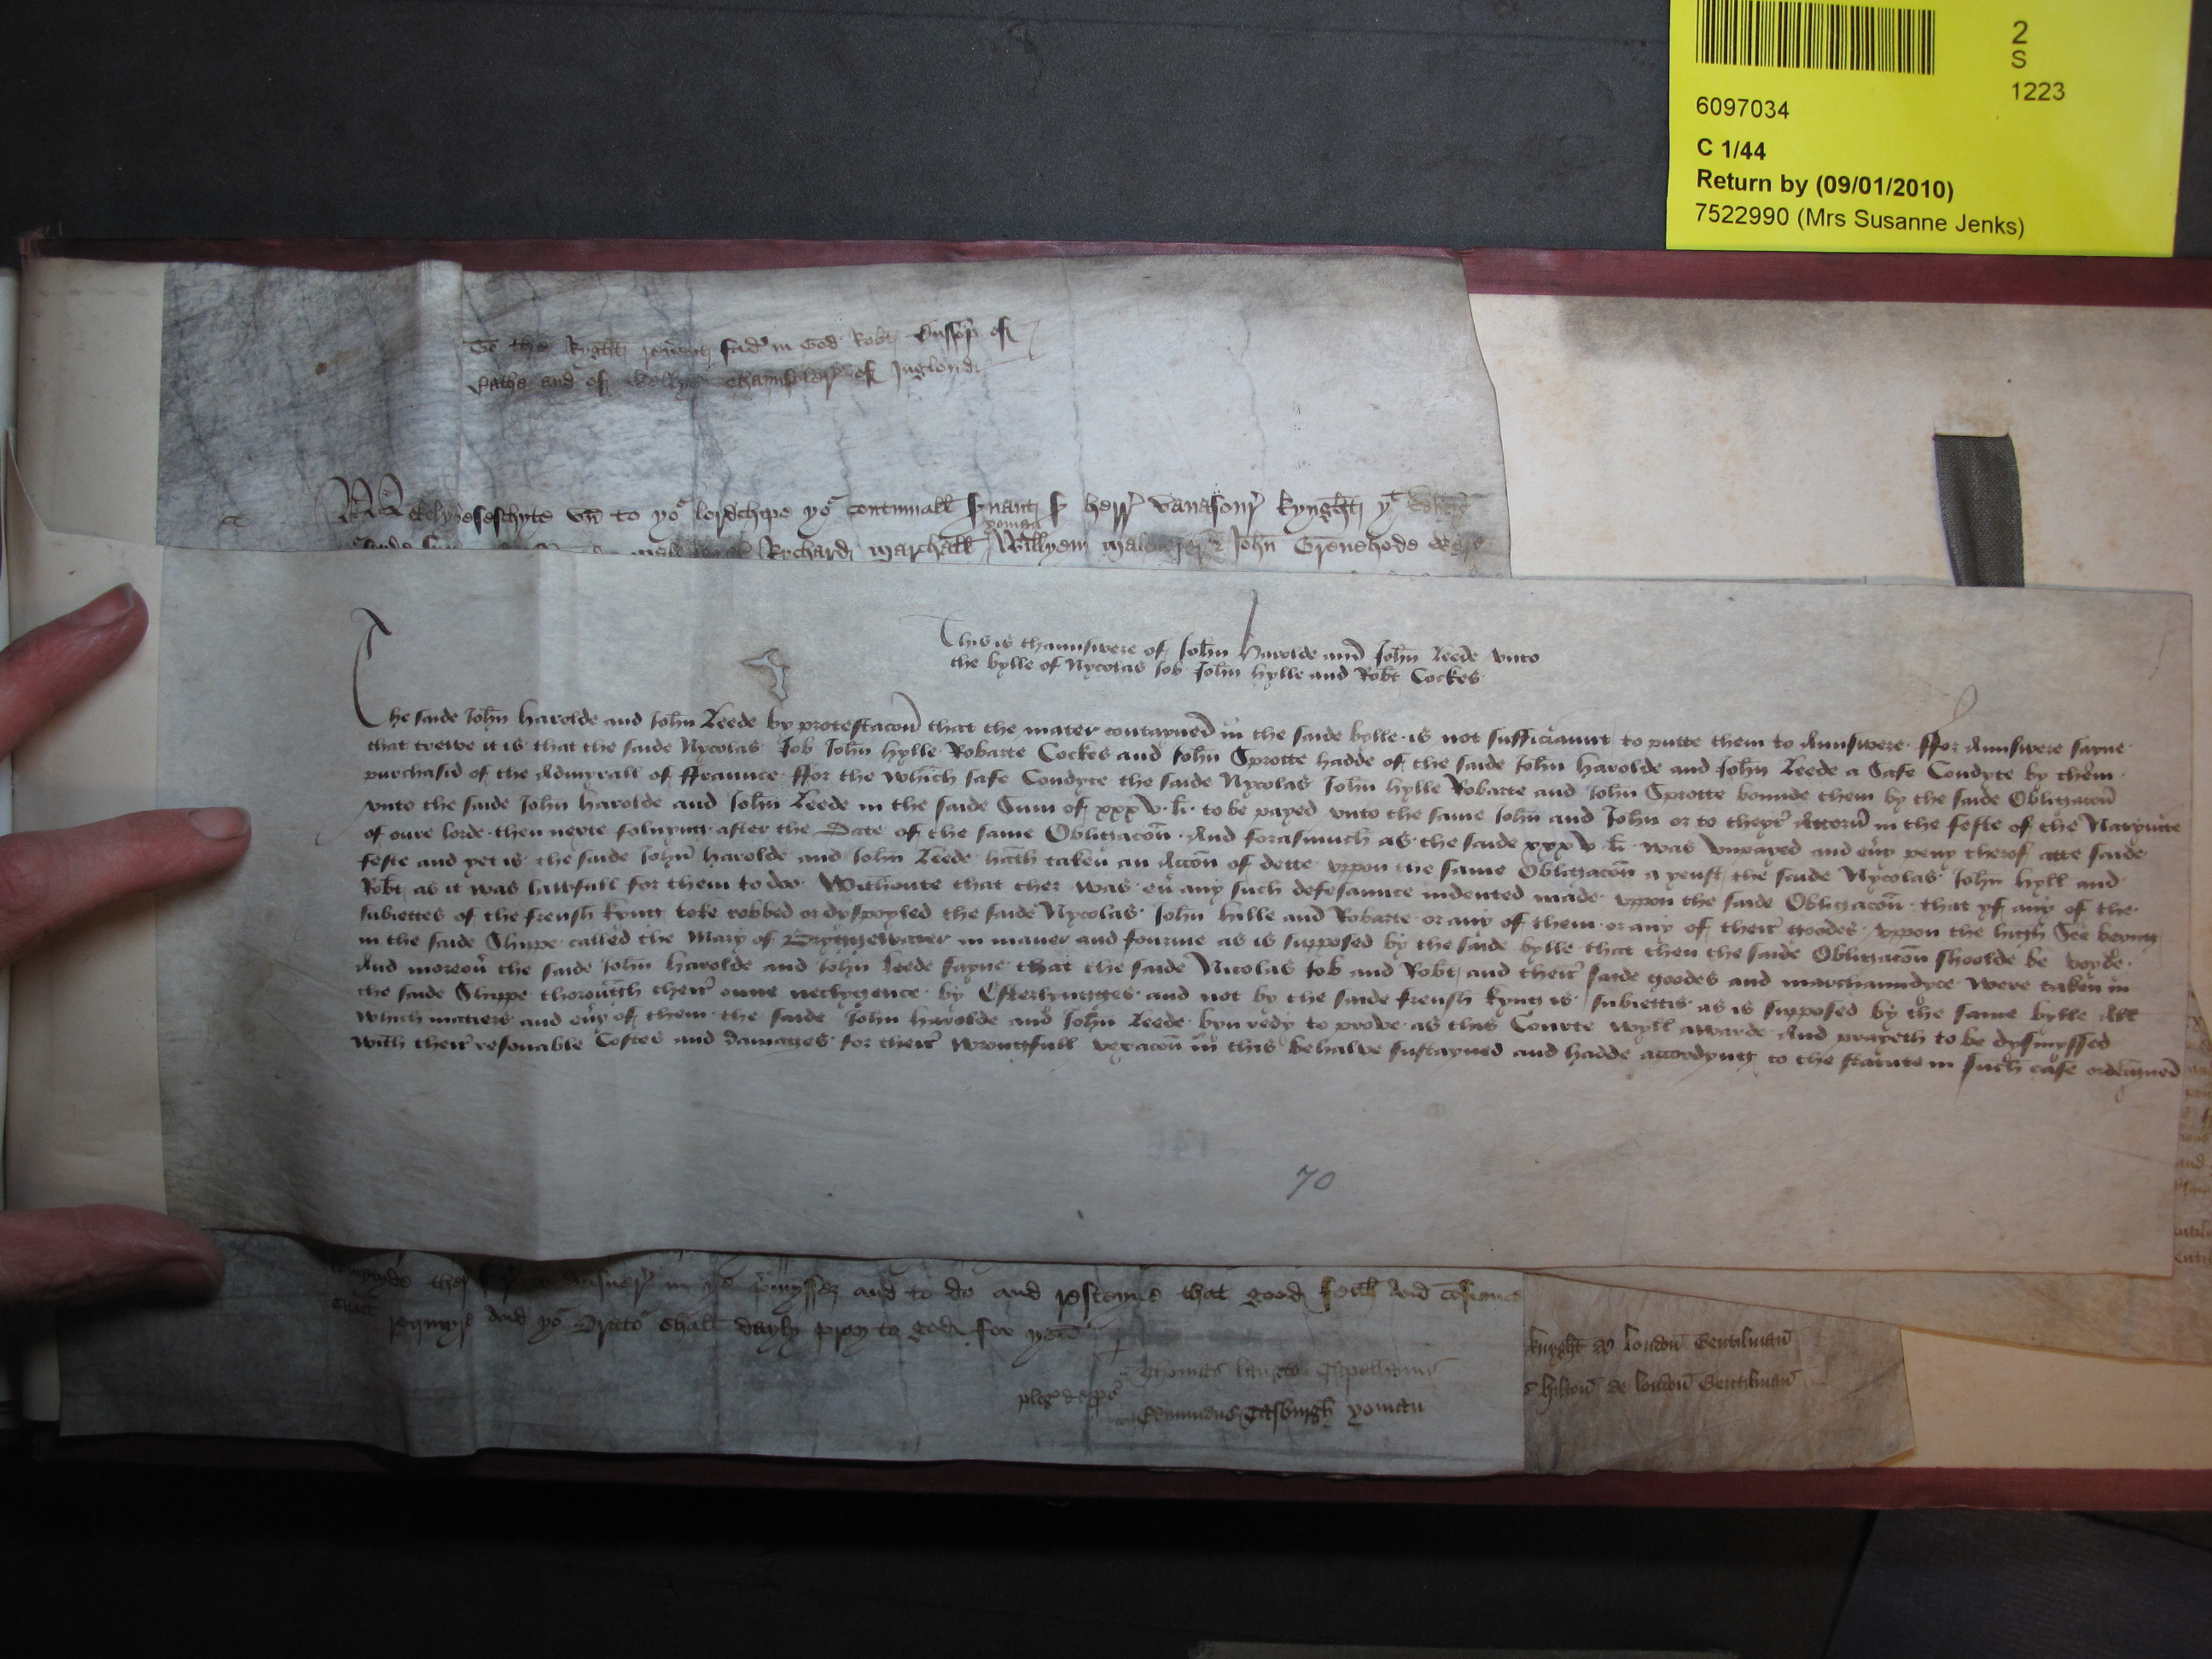 2
S
1223
6097034
C 1/44
Return by (09/01/2010)
7522990 (Mrs Susanne Jenks)
To the Ryght reverent fadr in God Robt Bussop of
Bathe and of Wellys Chaunseler of Inglond
Mekely beseschyte un to yor lordchepe yor contynuall servant sr Herr Vavasour Knyght
yoman
Rychard Marchall Willyam John Grenehode
This is thaunswere of John Harolde and John Leede unto
the bylle of Nycolas Job John Hylle and Robt Cockes
The saide John Harolde and John Leede by protestacon that the mater contayned in the saide bylle is not sufficiaunt to putte them to Aunswere ffor Aunswere sayne
that trewe it is that the saide Nycolas Job John Hylle Robarte Cockes and John Sprotte hadde of the saide John Harolde and John Leede a Safe Condyte by them
purchasid of the Admyrall of ffraunce ffor the which safe Condyte the saide Nycolas John Hylle Robarte and John Sprotte bounde them by the saide Obligacon
unto the saide John Harolde and John Leede in the saide Sum of xxxv li to be payed unto the same John and John or to theyr Attorn in the feste of the Natyvite
of oure lorde then nexte foluyng after the Date of the same Obligacon And forasmuch as the saide xxxv li was unpayed and eny peny therof atte saide
feste and yet is the saide John Harolde and John Leede hath taken an Accon of dette uppon the same Obligacon ayenst the saide Nycolas John Hyll and
Robt as it was lawfull for them to doo Withoute that ther was en any such defesaunce indented made uppon the saide Obligacon that yf any of the
subiettes of the frensh kyng toke robbed or dyspoyled the saide Nycolas John Hille and Robarte or any of them or any of their goodes uppon the high See beyng
in the saide Shippe called the Mary of Bryggewater in maner and fourme as is supposed by the saide bylle that then the saide Obligacon shoolde be voyde
And moreov the saide John Harolde and John Leede sayne that the saide Nicolas Job and Robt and their saide goodes and marchaundyce were taken in
the saide Shippe thorough their owne neclygence by Esterlyngges and not by the saide frensh kyng is subiettis as is supposed by the same bylle All
which maters and euy of them the saide John Harolde and John Leede byn redy to prove as this Courte wyll awarde And prayeth to be dysmyssed
with their resonable Costes and damages for their wrongfull vexacon in this behalve sustayned and hadde accordyng to the statute in such case ordeigned
70
in ye premysses and to do and resceyve that good feith and consiens
requyr And yor Orator shall dayly pray to god for you
Thomas
pleg de ps
Edmundus yoman
knyght de London Gentilman
Hilton de London Gentilman